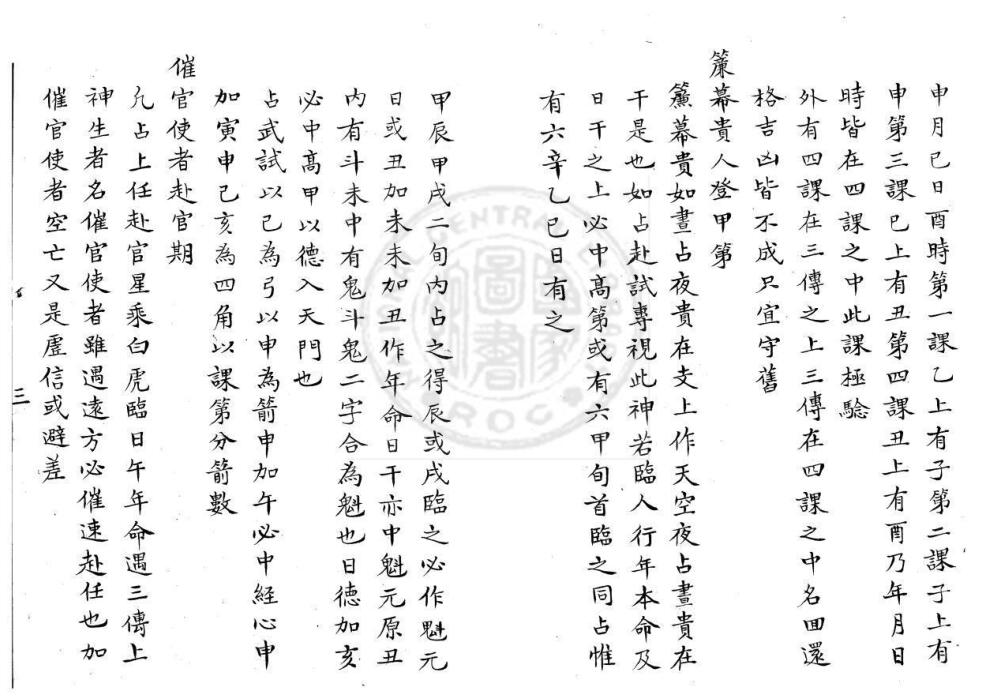 申月巳日酉時第一課乙上有子第二課子上有
申第三課巳上有丑第四課丑上有酉乃年月日
時皆在四課之中此課極驗
外有四課在三傳之上三傳在四課之中名回還
格吉凶皆不成只宜守舊
簾幕貴人登甲第
簾幕貴如晝占夜貴在支上作天空夜占晝貴在
干是也如占赴試專視此神若臨人行年本命及
日干之上必中高第或有六甲旬首臨之同占惟
有六辛乙巳日有之
甲辰甲戌二旬內占之得辰或戌臨之必作魁元
日或丑加未未加丑作年命日干亦中魁元原丑
內有斗未中有鬼斗鬼二字合為魁也日德加亥
必中高甲以德入天門也
占武試以巳為弓以申為箭申加午必中經心申
加寅申巳亥為四角以課第分箭數
催官使者赴官期
凡占上任赴官星乘白虎臨日午年命遇三傳上
神生者名催官使者雖遇遠方必催速赴任也加
催官使者空亡又是虛信或避差
三